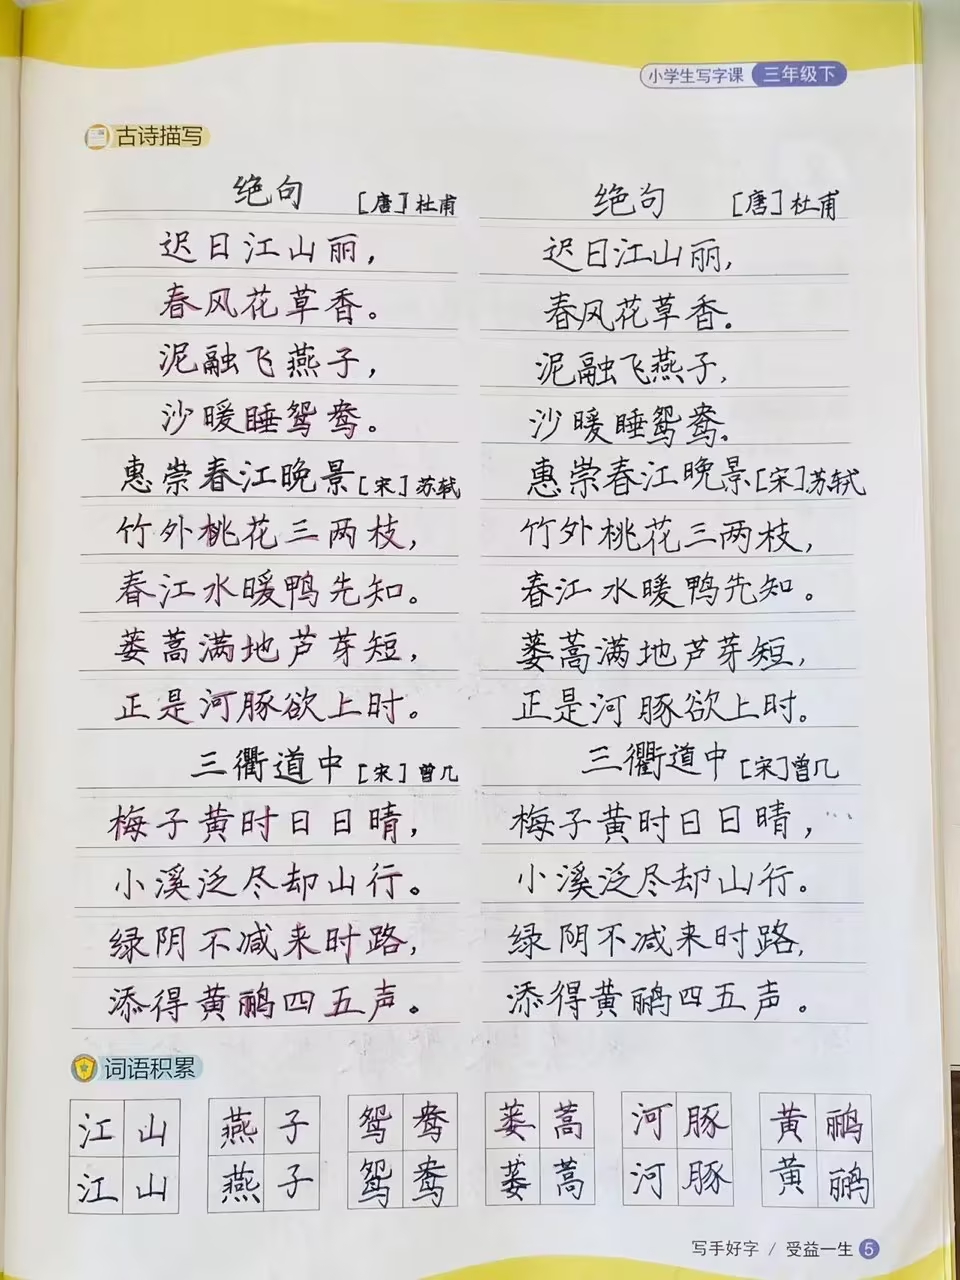 小学生写字课 三年级下
古诗描写
绝句 [唐]杜甫 绝句 [唐]杜甫
迟日江山丽， 迟日江山丽，
春风花草香。 春风花草香。
泥融飞燕子， 泥融飞燕子，
沙暖睡鸳鸯。 沙暖睡鸳鸯。
惠崇春江晚景[宋]苏轼 惠崇春江晚景[宋]苏轼
竹外桃花三两枝， 竹外桃花三两枝，
春江水暖鸭先知。 春江水暖鸭先知。
蒌蒿满地芦芽短， 蒌蒿满地芦芽短，
正是河豚欲上时。 正是河豚欲上时。
三衢道中 [宋]曾几 三衢道中 [宋]曾几
梅子黄时日日晴， 梅子黄时日日晴，
小溪泛尽却山行。 小溪泛尽却山行。
绿阴不减来时路， 绿阴不减来时路，
添得黄鹂四五声。 添得黄鹂四五声。
词语积累
江山 燕子 鸳鸯 蒌蒿 河豚 黄鹂
江山 燕子 鸳鸯 蒌蒿 河豚 黄鹂
写手好字 / 受益一生 5